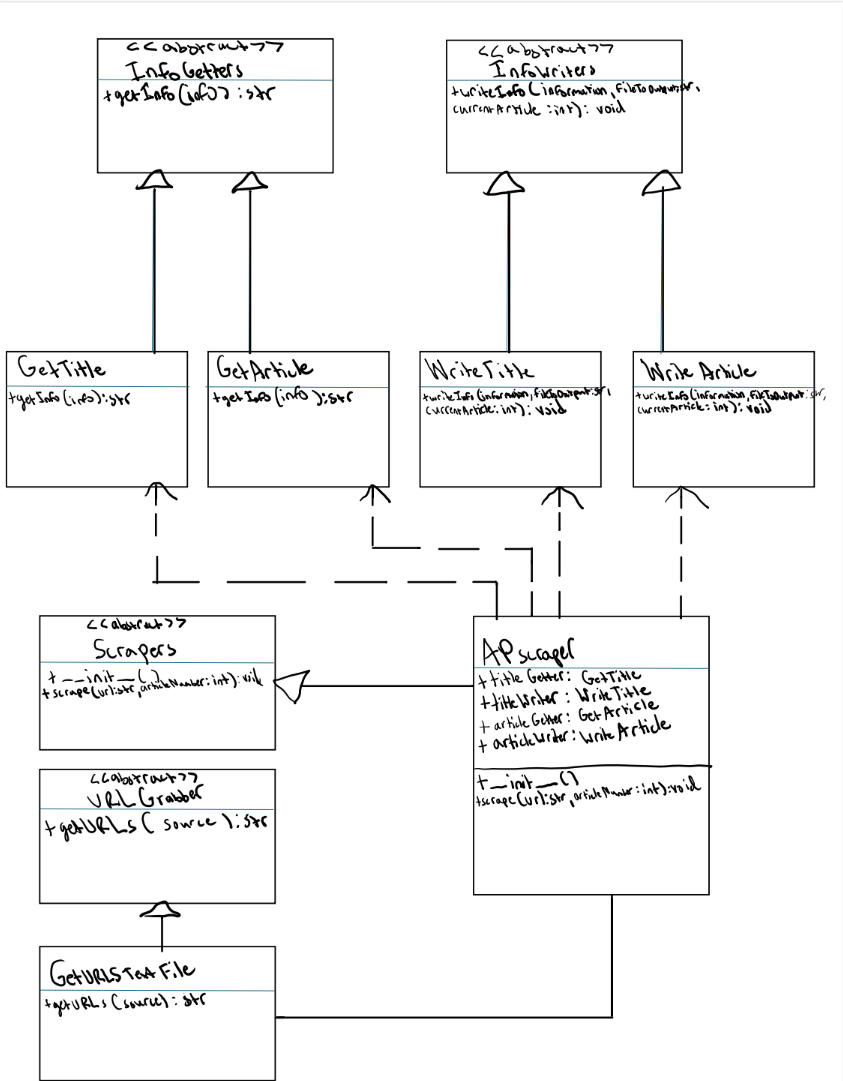 <<abstract>>
InfoGetters
+getInfo(info) : str
<<abstract>>
InfoWriters
+writeInfo(information, fileToOutput:str,
currentArticle :int): void
GetTitle
+getInfo(info):str
GetArticle
+getInfo(info):str
WriteTitle
+writeInfo(information, fileToOutput:str,
currentArticle: int): void
Write Article
+writeInfo(information, fileToOutput:str,
currentArticle: int): void
<<abstract>>
Scrapers
+ __init__()
+scrape(url:str, articleNumber:int): void
APscraper
+titleGetter: GetTitle
+titleWriter: WriteTitle
+ articleGetter: GetArticle
+ articleWriter: WriteArticle
+__init__()
+scrape(url:str, articleNumber: int):void
<<abstract>>
URLGrabber
+getURLs( source ):str
GetURLSTextFile
+getURLs(source): str